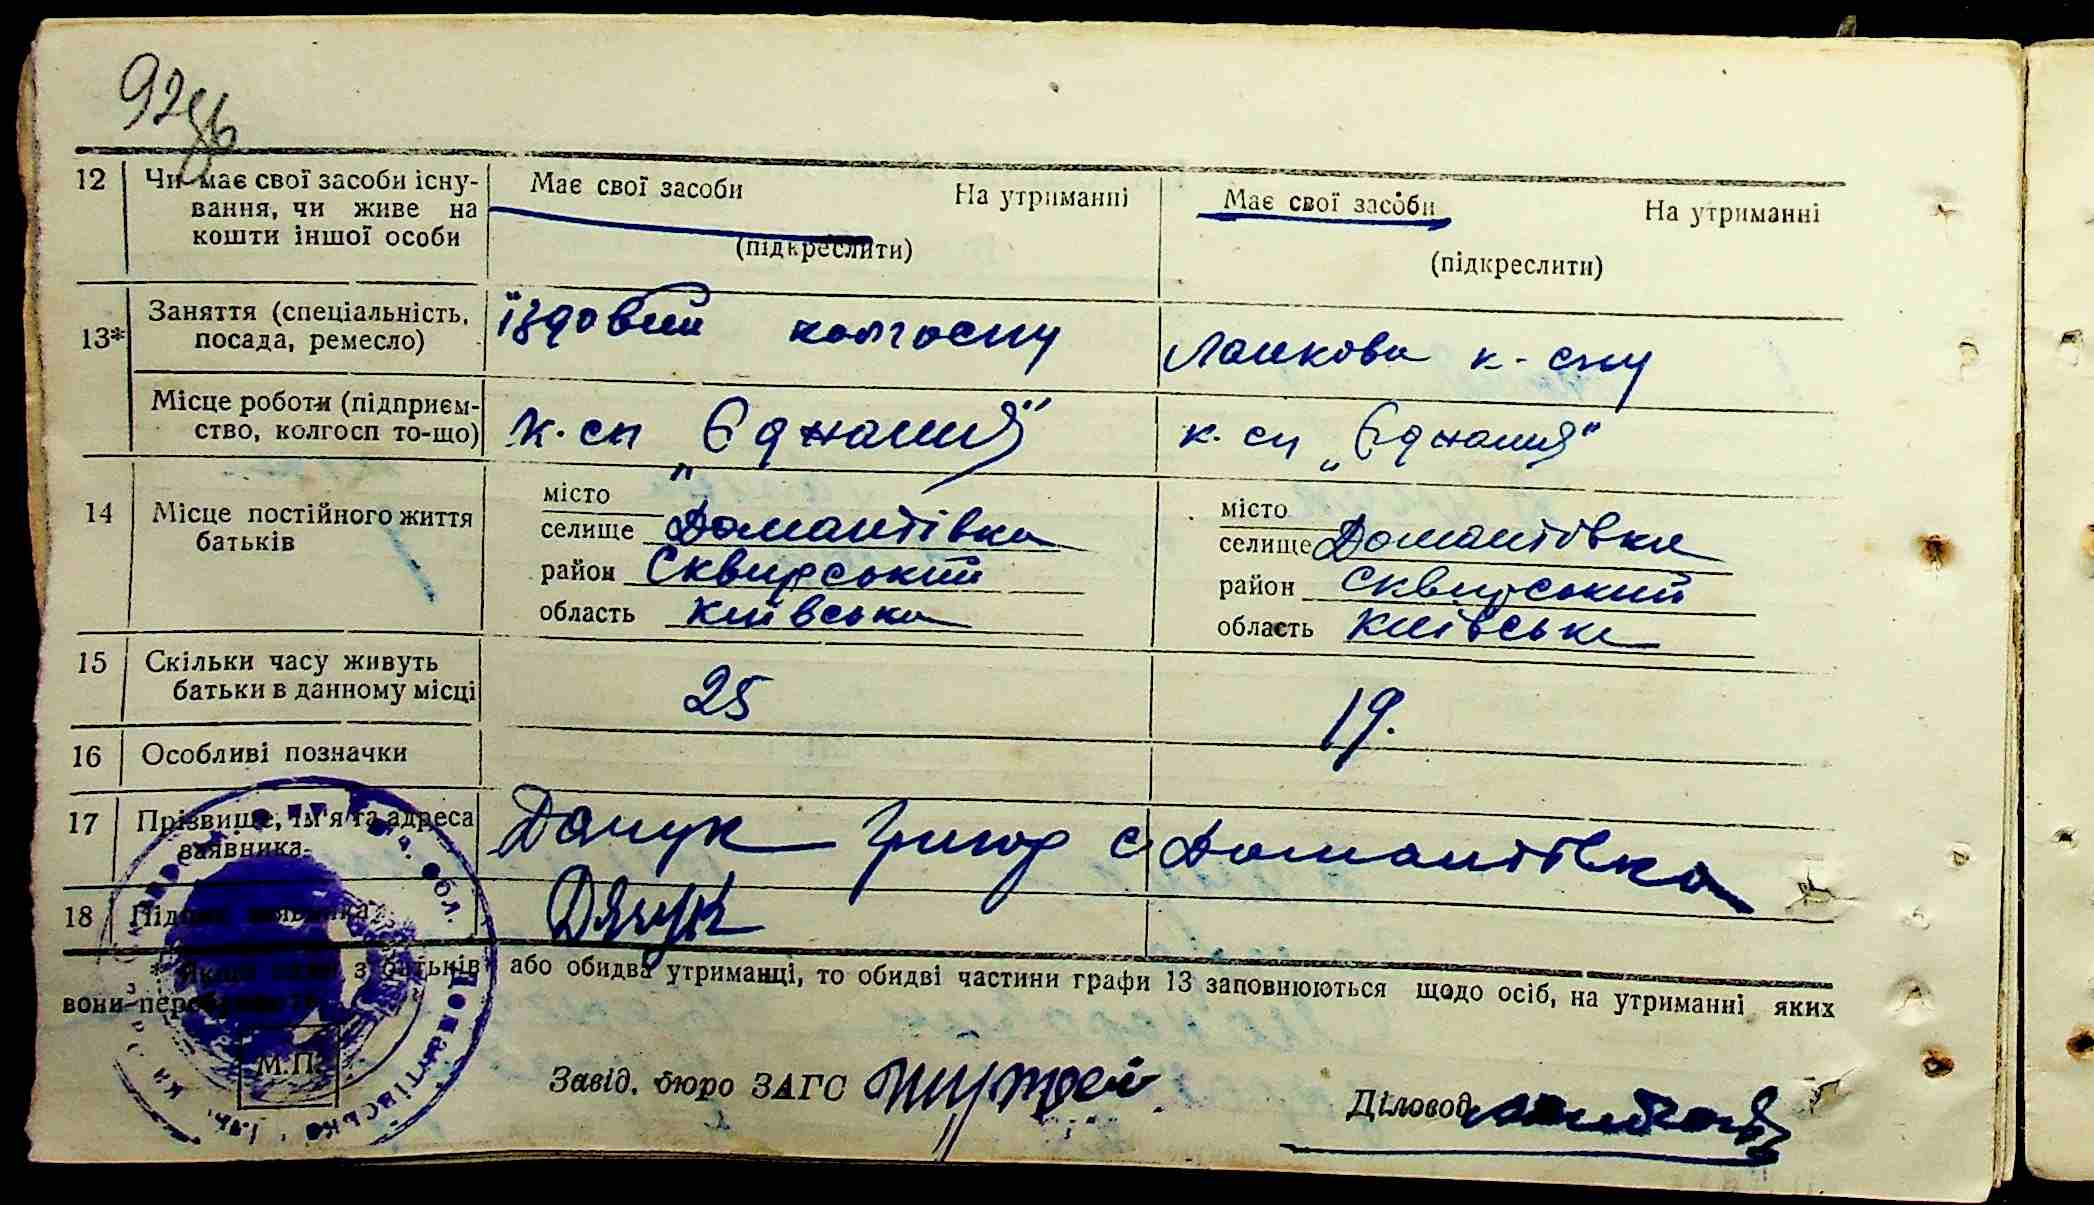 92зв
12 Чи має свої засоби існу- Має свої засоби На утриманні Має свої засоби На утриманні
вання, чи живе на
кошти іншої особи (підкреслити) (підкреслити)
13* Заняття (спеціальність, їздовий колгоспу Ланкова к-спу
посада, ремесло)
Місце роботи (підприєм- к.сп „Єднання" к. сп „Єднання"
ство, колгосп то-що)
14 Місце постійного життя місто місто
батьків селище Домантівка селище Домантівка
район Сквирський район Сквирський
область Київська область Київська
15 Скільки часу живуть 25 19.
батьки в данному місці
16 Особливі позначки
17 Прізвище, ім'я та адреса Дячук Григор с Домантівка
заявника
18 Підпис заявника Дячук
* Якщо один з батьків або обидва утриманці, то обидві частини графи 13 заповнюються щодо осіб, на утриманні яких
вони
М.П.
Завід. бюро ЗАГС Діловод